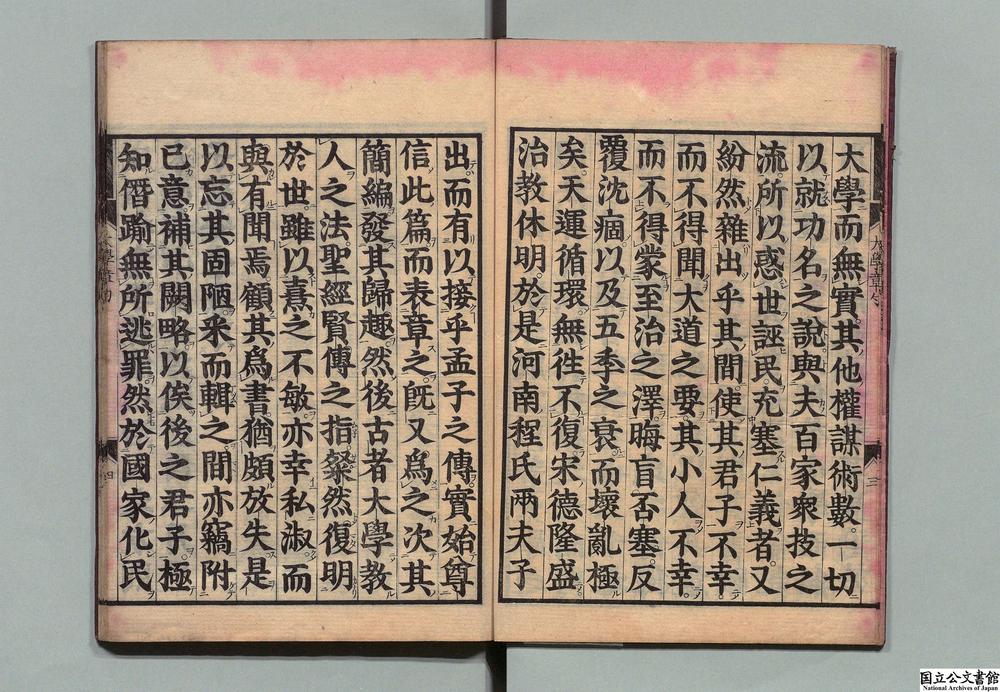 大學而無實其他權謀術數一切
以就功名之說與夫百家衆技之
流所以惑世誣民充塞仁義者又
紛然雜出乎其間使其君子不幸
而不得聞大道之要其小人不幸
而不得蒙至治之澤晦盲否塞反
覆沈痼以及五季之衰而壞亂極
矣天運循環無徃不復宋德隆盛
治教休明於是河南程氏兩夫子
出而有以接乎孟子之傳實始尊
信此篇而表章之旣又爲之次其
簡編發其歸趣然後古者大學教
人之法聖經賢傳之指粲然復明
於世雖以熹之不敏亦幸私淑而
與有聞焉顧其爲書猶頗放失是
以忘其固陋釆而輯之間亦竊附
己意補其闕略以俟後之君子極
知僭踰無所逃罪然於國家化民
三
四
国立公文書館
National Archives of Japan